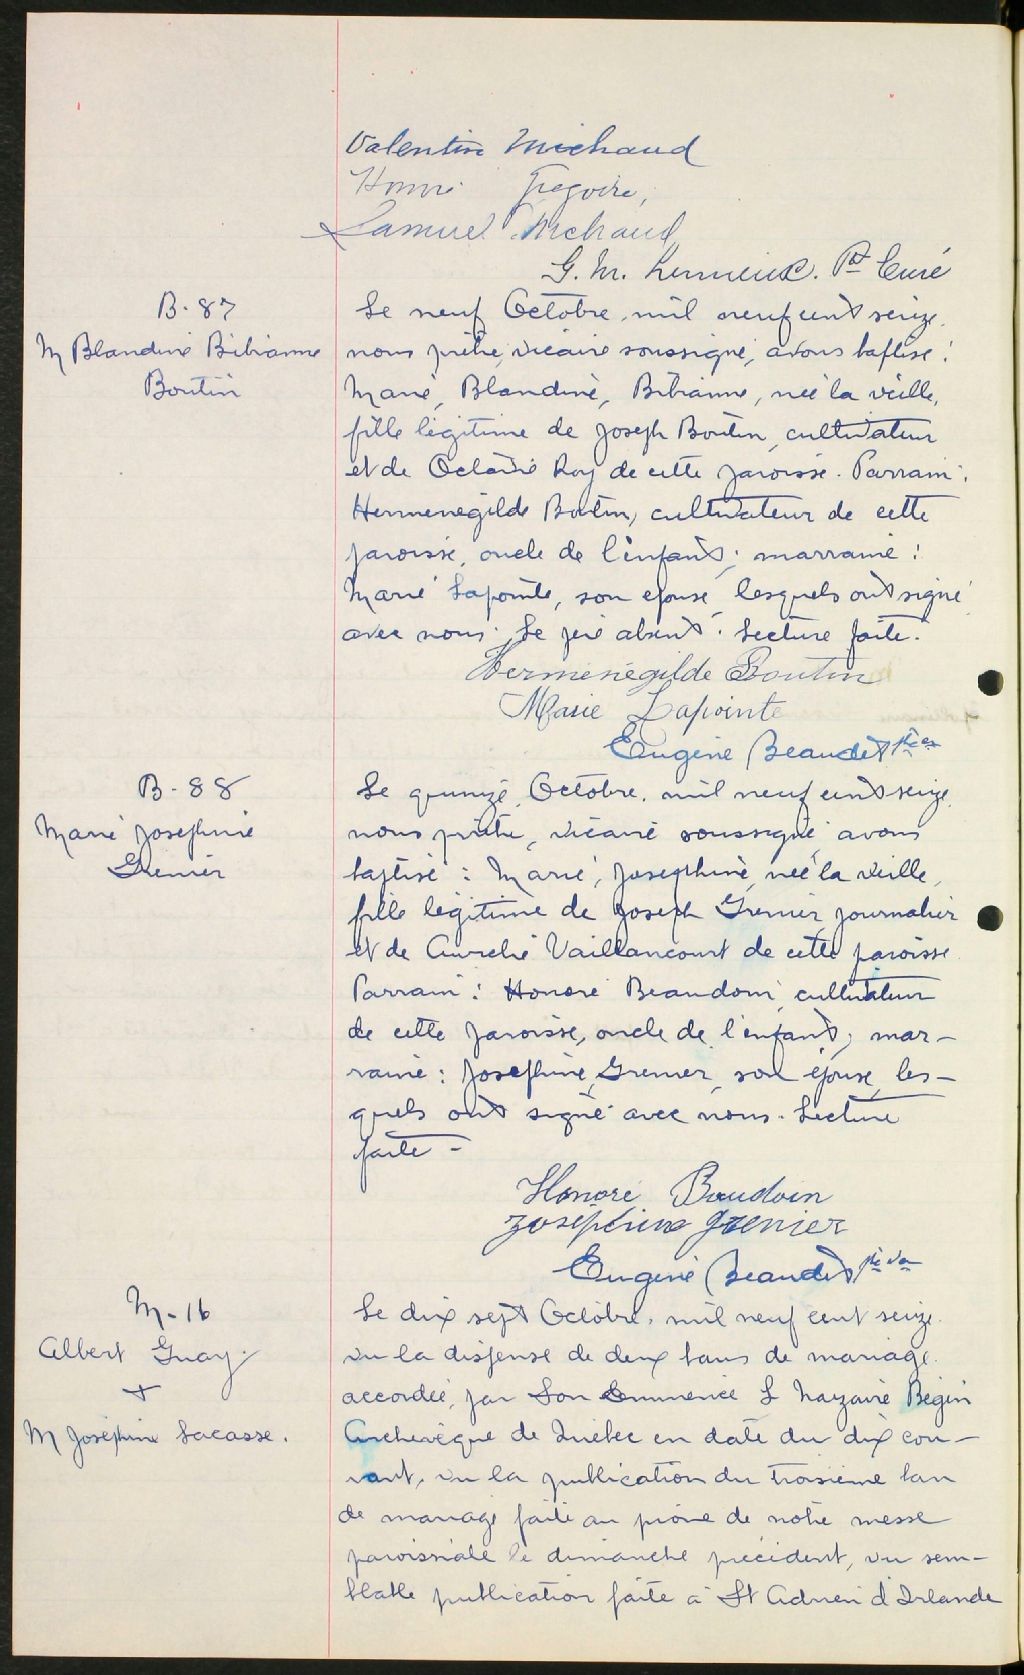 Valentin Michaud
Henri Gregoire,
Samuel Michaud
G. M. Lemieux. Ptre Curé
B. 87
M Blandine Bibianne
Boutin
Le neuf Octobre, mil neuf cent seize,
nous prêtre, vicaire soussigné, avons baptisé :
Marie, Blandine, Bibianne, née la veille,
fille légitime de Joseph Boutin, cultivateur
et de Octavie Roy de cette paroisse. Parrain :
Hermenegilde Boutin, cultivateur de cette
paroisse, oncle de l'enfant ; marraine :
Marie Lapointe, son épouse, lesquels ont signé
avec nous. Le père absent. Lecture faite.
Herménégilde Boutin
Marie Lapointe
Eugène Beaudet ptre
B - 88
Marie Josephine
Grenier
Le quinze Octobre, mil neuf cent seize,
nous prêtre, vicaire soussigné, avons
baptisé : Marie, Josephine, née la veille,
fille légitime de Joseph Grenier, journalier
et de Aurelie Vaillancourt de cette paroisse.
Parrain : Honoré Beaudoin, cultivateur
de cette paroisse, oncle de l'enfant ; mar-
raine : Josephine Grenier, son épouse, les-
quels ont signé avec nous. Lecture
faite -
Honoré Boudoin
Joséphine Grenier
Eugène Beaudet ptre
M - 16
Albert Guay.
+
M Joséphine Lacasse.
Le dix sept Octobre, mil neuf cent seize,
vu la dispense de deux bans de mariage
accordée, par Son Eminence L Nazaire Bégin
Archevêque de Québec en date du dix cou-
rant, vu la publication du troisième ban
de mariage faite au prône de notre messe
paroissiale le dimanche précédent, vu sem-
blable publication faite à St Adrien d'Irlande